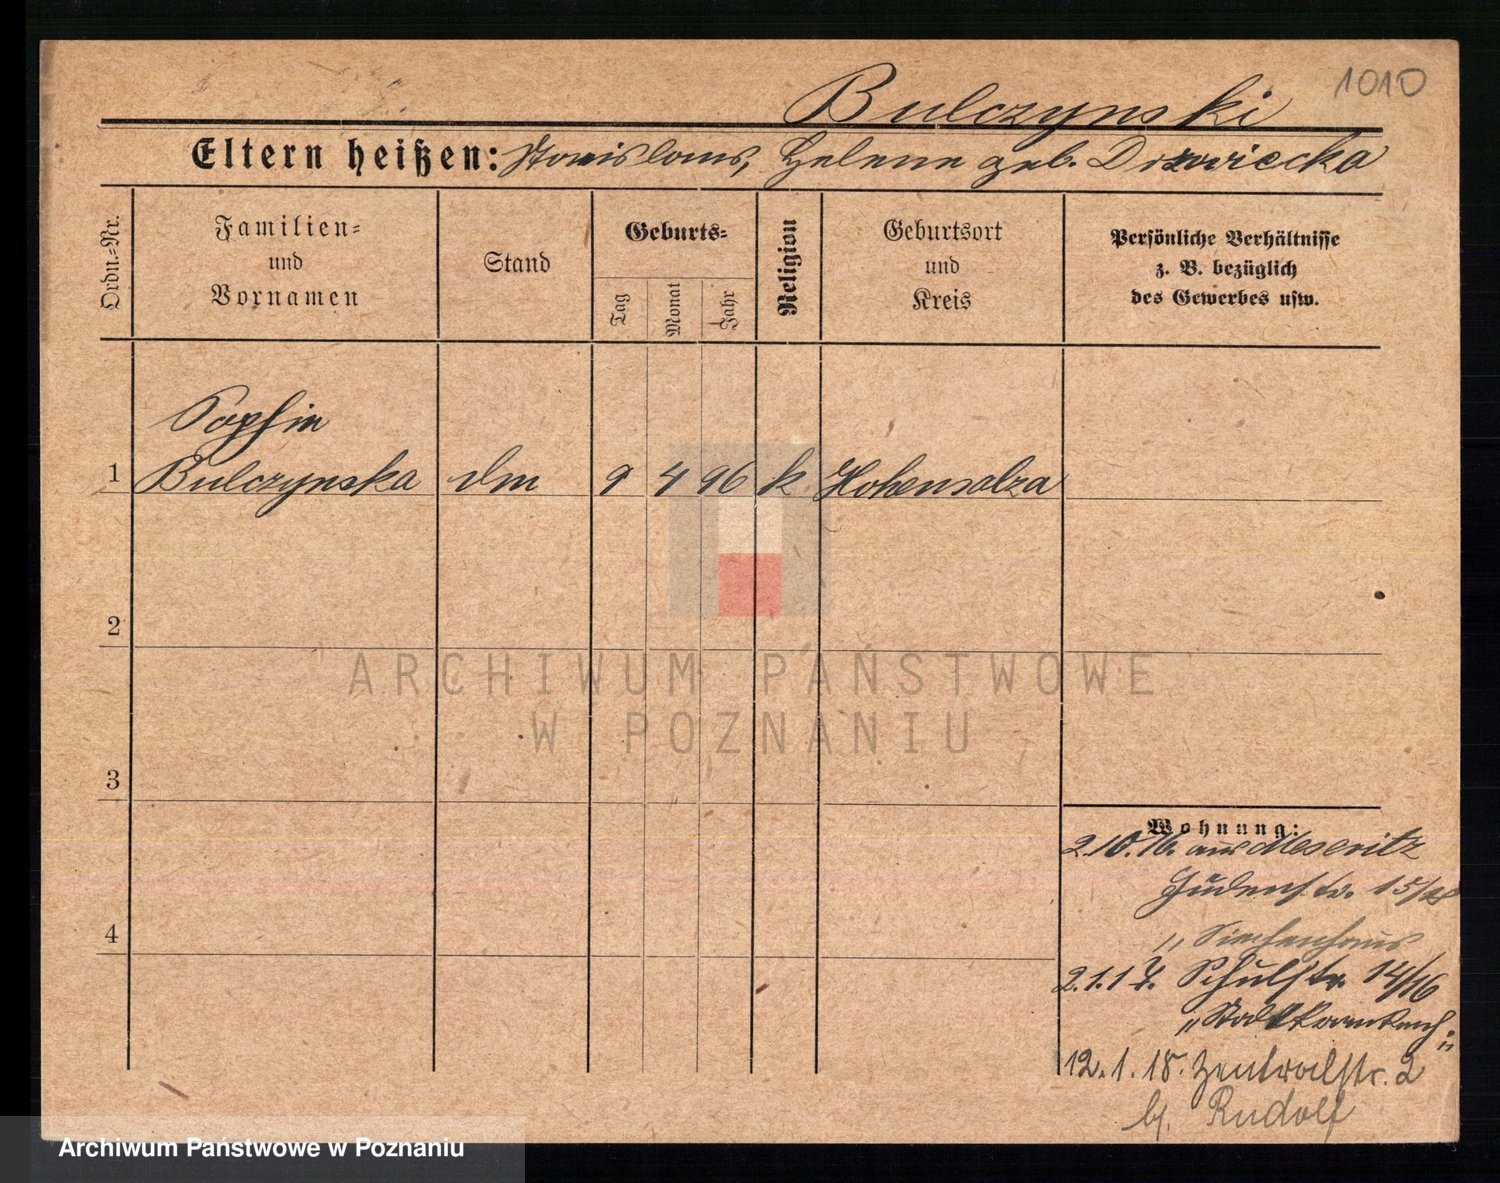 1010
Bulczynski
Eltern heißen: Stanislaus, Helene geb. Drzewiecka
Ordn.=Nr.
Familien=
und
Vornamen
Stand
Geburts=
Tag
Monat
Jahr
Religion
Geburtsort
und
Kreis
Persönliche Verhältnisse
z. B. bezüglich
des Gewerbes usw.
Sophie
1 Bulczynska dm 9 4 96 k Hohensalza
2
3
4
Wohnung:
2.10.16. aus Meseritz
Judenstr. 15/18
" Siechenhaus
2.1.17. Schulstr. 14/16
" Stadtkrankenh:
12.1.18. Zentralstr. 2
b/. Rudolf
ARCHIWUM PAŃSTWOWE
W POZNANIU
Archiwum Państwowe w Poznaniu